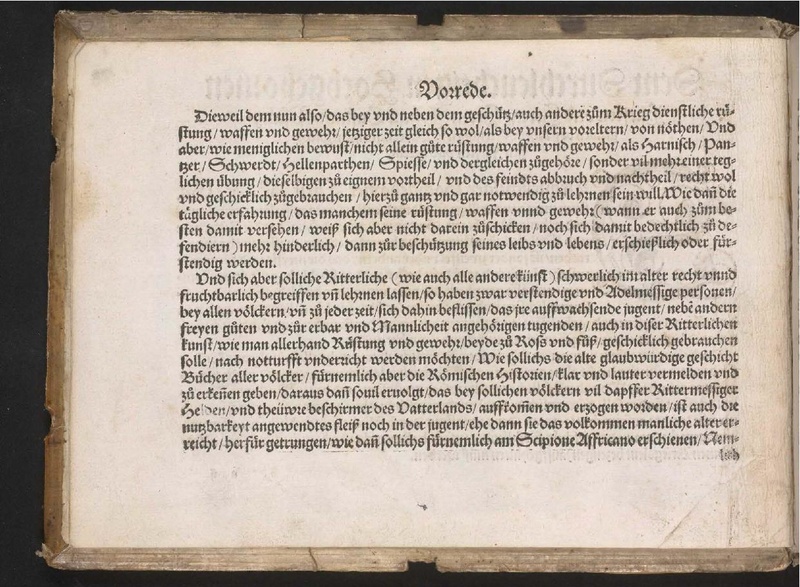 Vorrede.
Dieweil dem nun also/das bey vnd neben dem geschütz/auch andere zům Krieg dienstliche rü-
stung/waffen vnd gewehr/jetziger zeit gleich so wol/als bey vnsern voreltern/von nöthen/Vnd
aber/wie meniglichen bewust/nicht allein gůte rüstung/waffen vnd gewehr/als Harnisch/Pan-
tzer/Schwerdt/Hellenparthen/Spiesse/vnd dergleichen zůgehöre/sonder vil mehr einer teg-
lichen übung/dieselbigen zů eignem vortheil/vnd des feindts abbruch vnd nachtheil/recht wol
vnd geschicklich zůgebrauchen/hierzů gantz vnd gar notwendig zů lehrnen sein will. Wie dañ die
tägliche erfahrung/das manchem seine rüstung/waffen vnnd gewehr (wann er auch zům be-
sten damit versehen/weiß sich aber nicht darein zůschicken/noch sich damit bedechtlich zů de-
fendiern) mehr hinderlich/dann zůr beschützung seines leibs vnd lebens/erschießlich oder für-
stendig werden.
Vnd sich aber solliche Ritterliche (wie auch alle andere künst) schwerlich im alter recht vnnd
fruchtbarlich begreiffen vñ lehrnen lassen/so haben zwar verstendige vnd Adelmessige personen/
bey allen völckern/vñ zů jeder zeit/sich dahin beflissen/das jre auffwachsende jugent/nebẽ andern
freyen gůten vnd zůr erbar vnd Mannlicheit angehörigen tugenden/auch in diser Ritterlichen
kunst/wie man allerhand Rüstung vnd gewehr/beyde zů Roß vnd fůß/geschicklich gebrauchen
solle/nach notturfft vnderricht werden möchten/Wie sollichs die alte glaubwürdige geschicht
Bücher aller völcker/fürnemlich aber die Römischen Historien/klar vnd lauter vermelden vnd
zů erkeñen geben/daraus dañ souil eruolgt/das bey sollichen völckern vil dapffer Rittermessiger
Helden/vnd theüwre beschirmer des Vatterlands/auffkom̃en vnd erzogen worden/ist auch die
nutzbarkeyt angewendtes fleiß noch in der jugent/ehe dann sie das volkommen manliche alter er-
reicht/herfür getrungen/wie dañ sollichs fürnemlich am Scipione Affricano erschienen/Nem-
lich